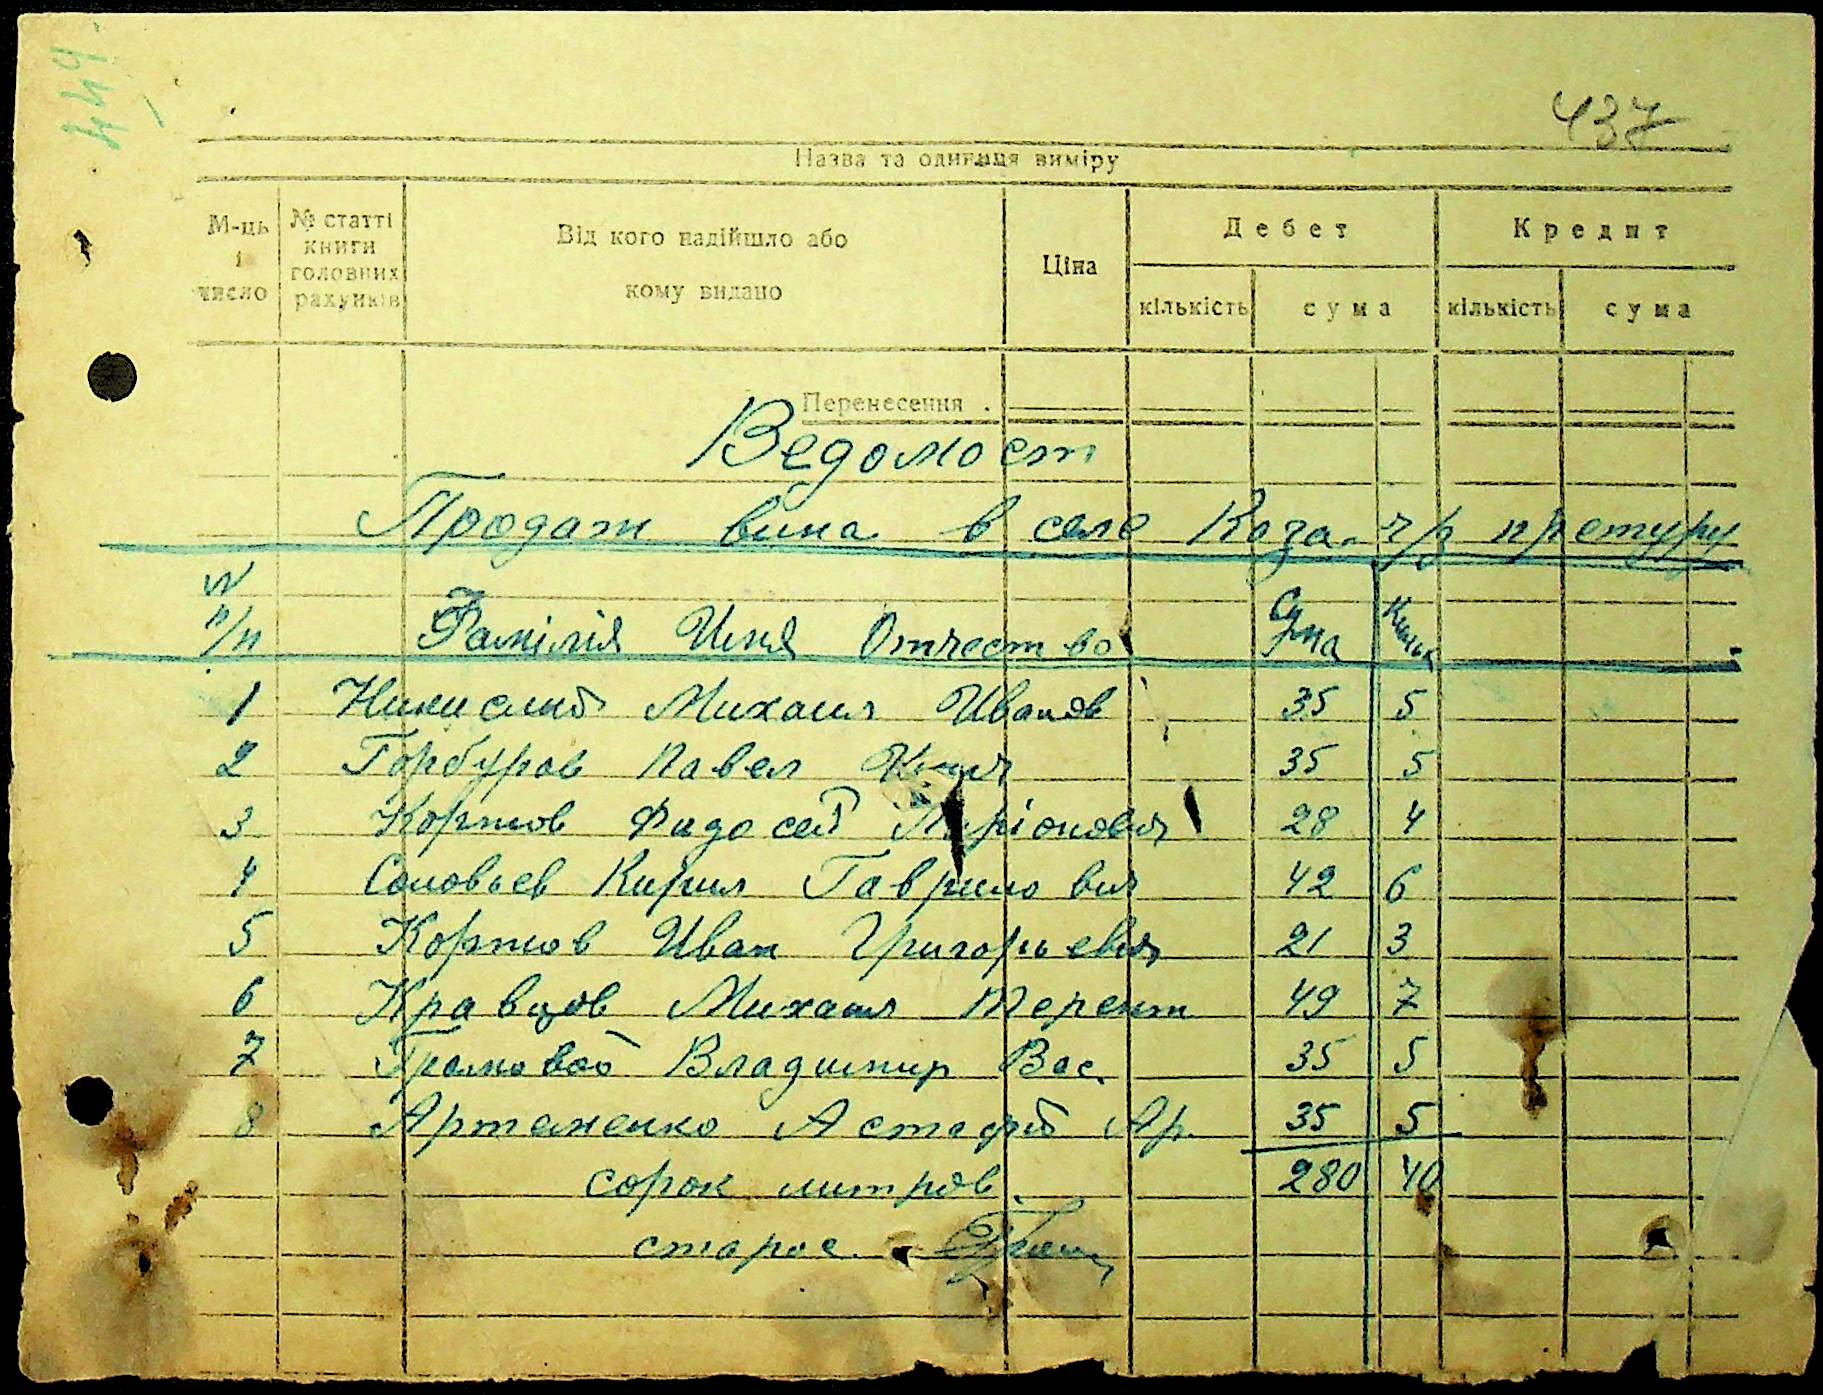 449
437
Назва та одиниця виміру
М-ць і число
№ статті книги головних рахунків
Від кого надійшло або кому видано
Ціна
Дебет
Кредит
кількість
сума
кількість
сума
Перенесення .
Ведомост
Продаж вина в селе Коза. ч/з претуру
N п/п Фамілія Имя Отчество Сума
1 Михаил Иванов 35 5
2 Горбуров Павел 35 5
3 Коржов Фидосей 28 4
4 Соловьев Кирил Гаврилович 42 6
5 Коржов Иван Григорьевич 21 3
6 Кравцов Михаил Терент 49 7
7 Громовой Владимир Вас. 35 5
8 Артеменко Астафий Ар. 35 5
сорок литров 280 40
старос.